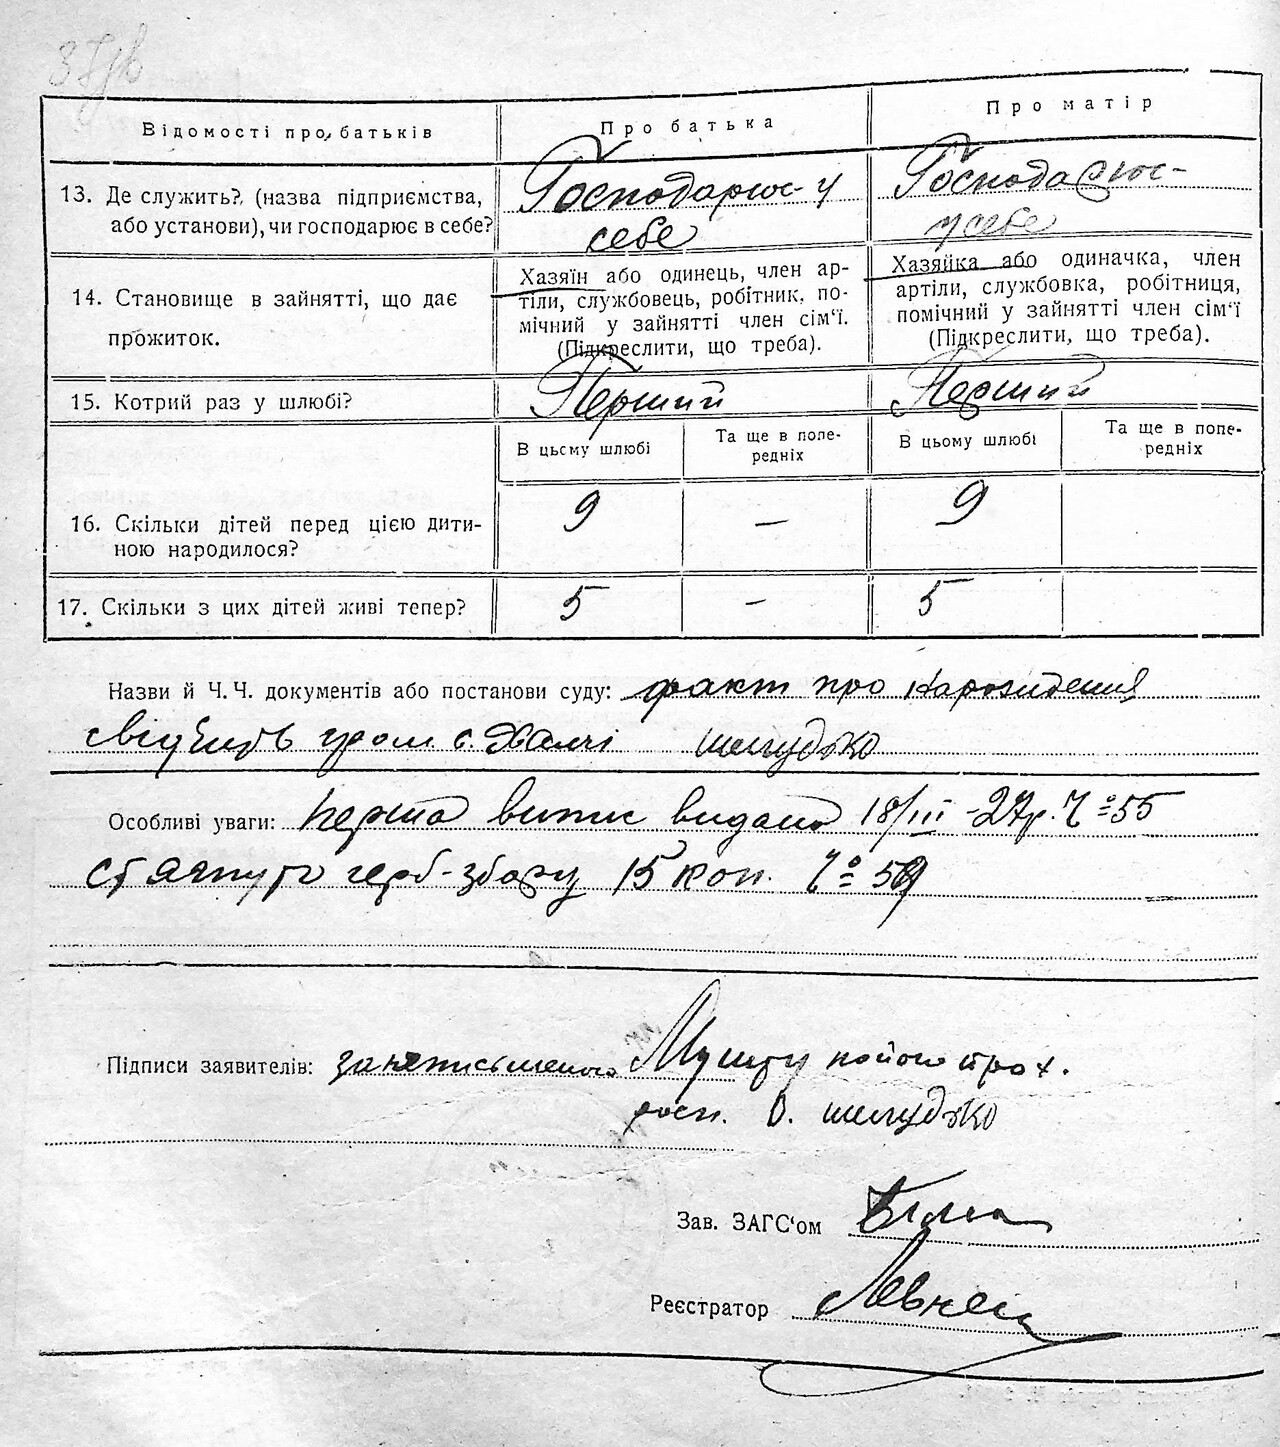 Відомості про батьків
Про батька
Про матір
13. Де служить? (назва підприємства,
або установи), чи господарює в себе?
Господарює у
себе
Господарює
у себе
14. Становище в зайнятті, що дає
прожиток.
Хазяїн або одинець, член ар-
тіли, службовець, робітник, по-
мічний у зайнятті член сім'ї.
(Підкреслити, що треба).
Хазяйка або одиначка, член
артіли, службовка, робітниця,
помічний у зайнятті член сім'ї
(Підкреслити, що треба).
15. Котрий раз у шлюбі?
Перший
Перший
В цьому шлюбі
Та ще в попе-
редніх
В цьому шлюбі
Та ще в попе-
редніх
16. Скільки дітей перед цією дити-
ною народилося?
9
—
9
17. Скільки з цих дітей живі тепер?
5
—
5
Назви й Ч. Ч. документів або постанови суду: факт про народження
свідчить гром с. Халчі Шелудько
Особливі уваги: перша випис видана 18/III-27р. Ч° 55
стягнуто герб-збору 15 коп. Ч°
Підписи заявителів: за неписьменого Мушту по його прох.
росп. О. Шелудько
Зав. ЗАГС'ом
Реєстратор